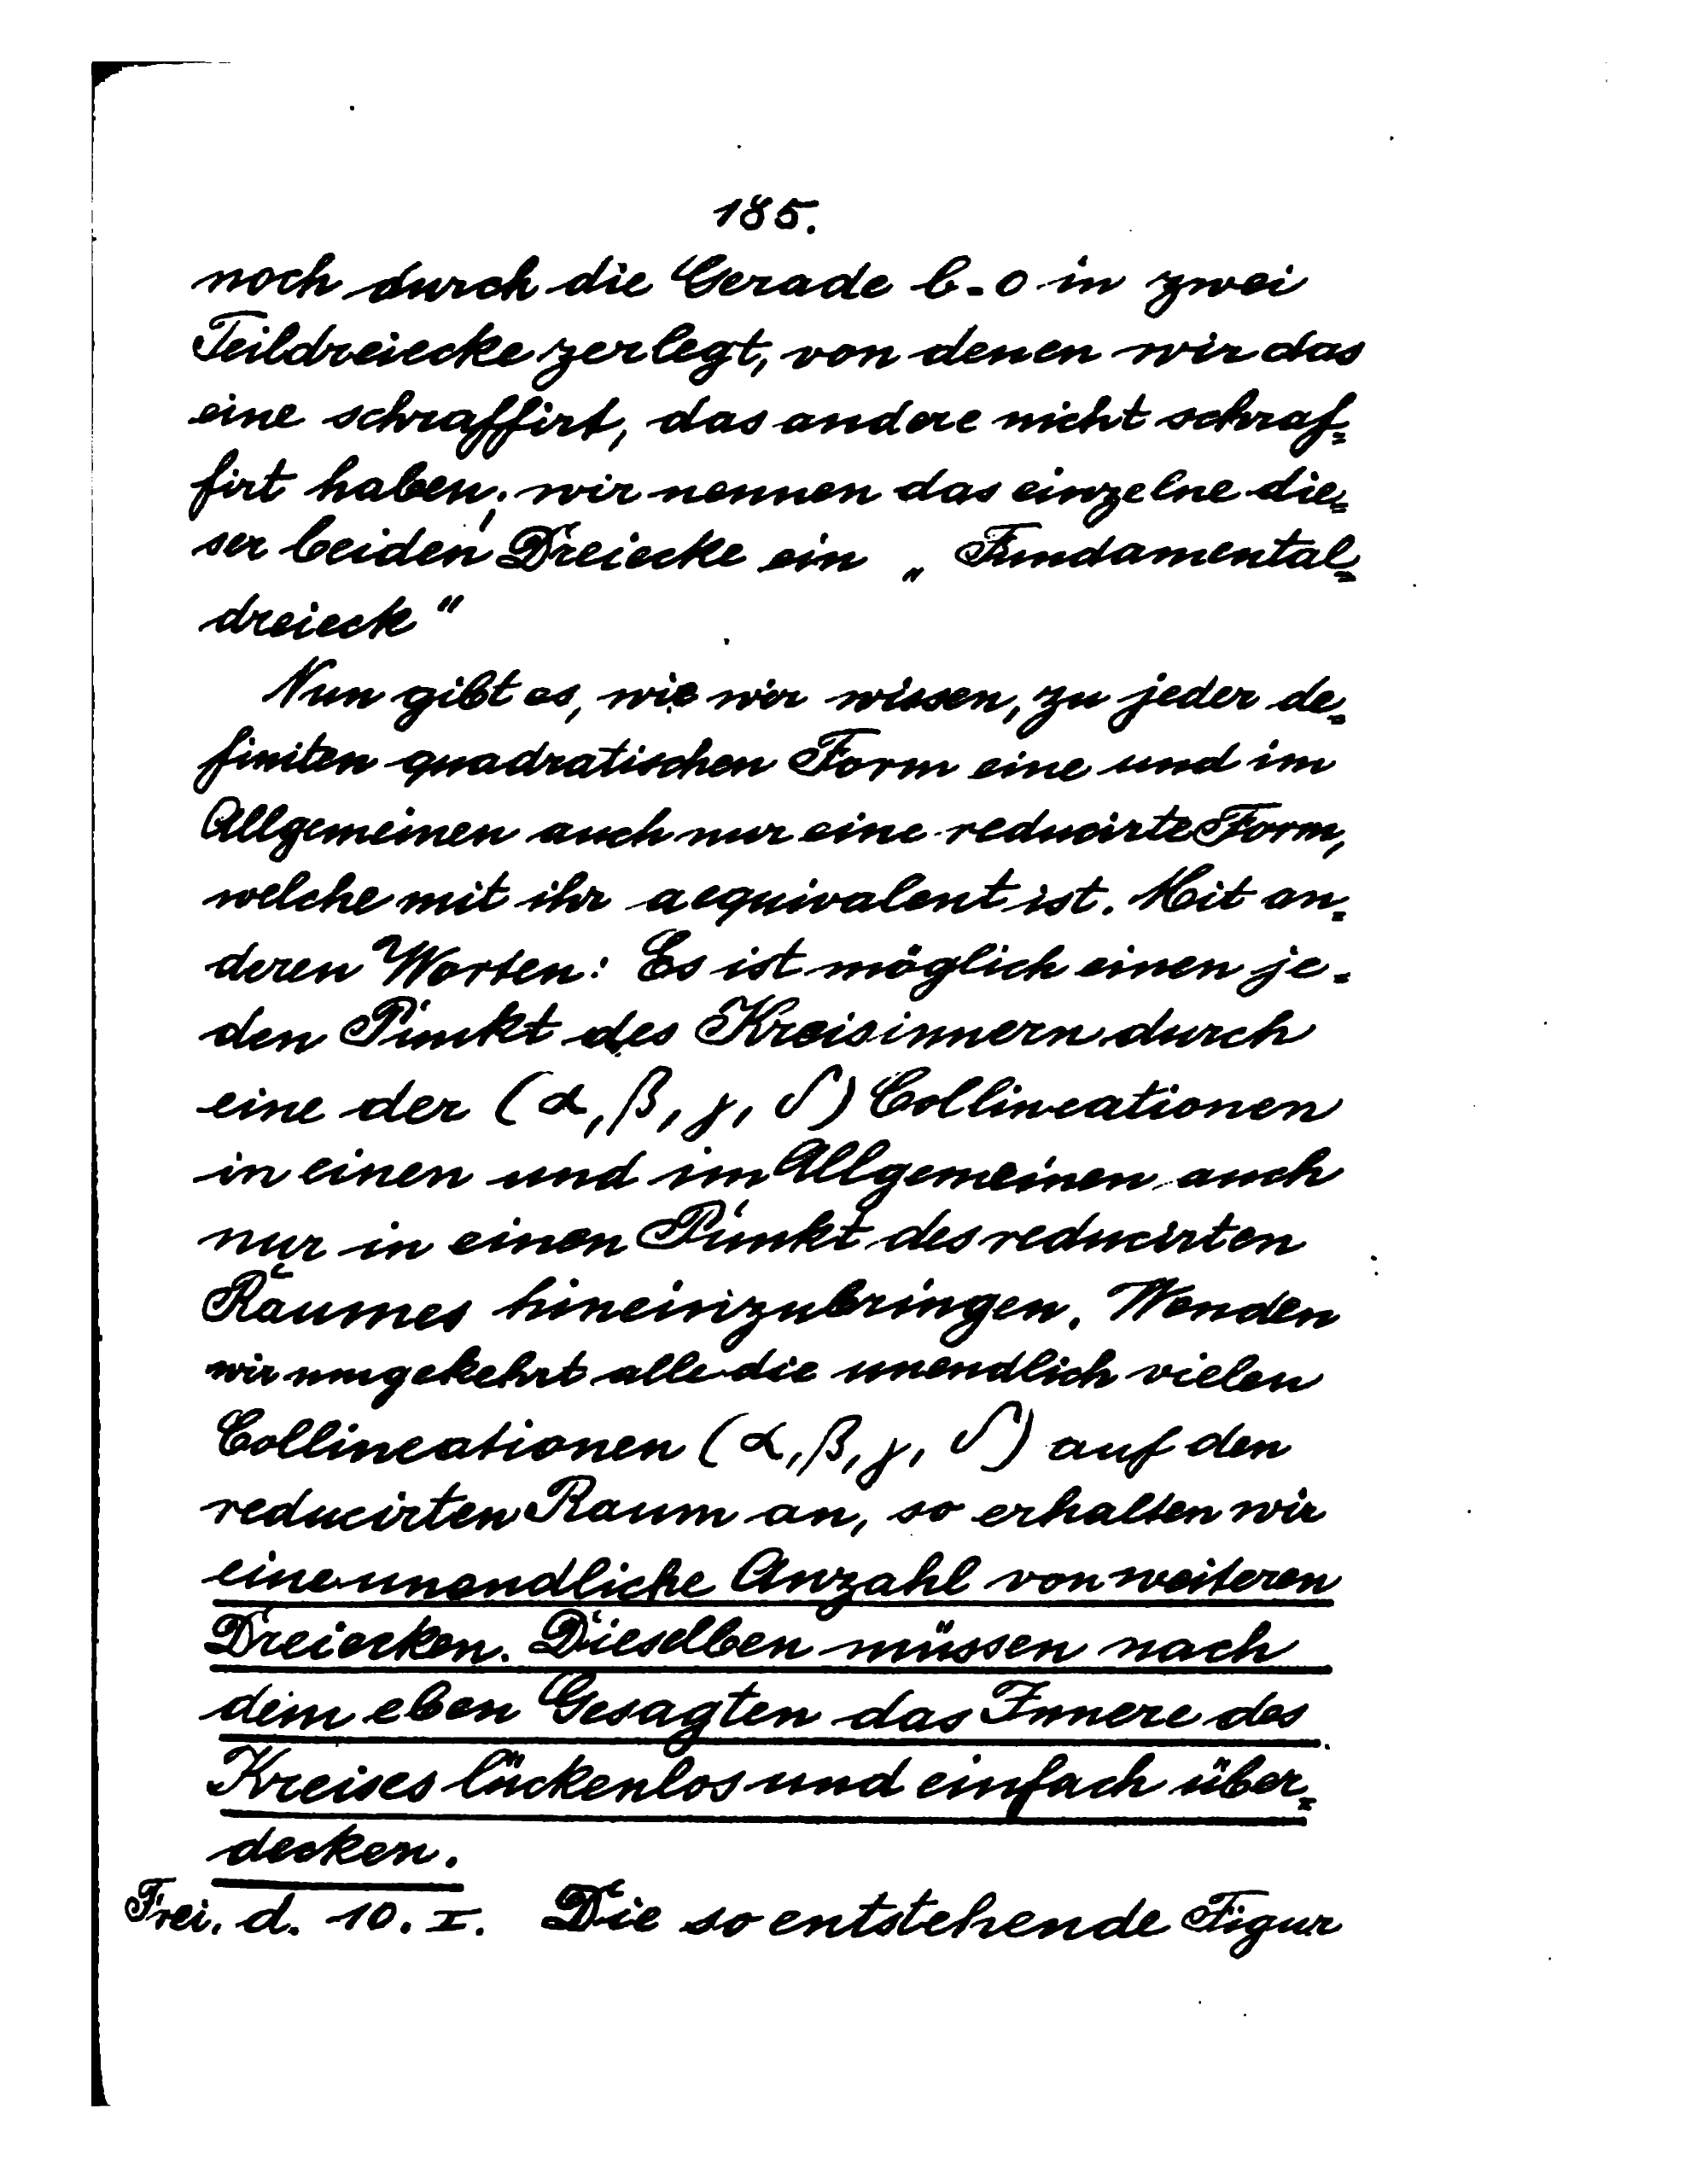 185.
noch durch die Gerade b=0 in zwei
Teildreiecke zerlegt, von denen wir das
eine schraffirt, das andere nicht schraf=
firt haben; wir nennen das einzelne die=
ser beiden Dreiecke ein „Fundamental=
dreieck“
Nun gibt es, wie wir wissen, zu jeder de=
finiten quadratischen Form eine und im
Allgemeinen auch nur eine reducirte Form,
welche mit ihr aequivalent ist. Mit an=
deren Worten: Es ist möglich einen je=
den Punkt des Kreisinnern durch
eine der (α, β, γ, δ) Collineationen
in einen und im Allgemeinen auch
nur in einen Punkt des reducirten
Raumes hineinzubringen. Wenden
wir umgekehrt alle die unendlich vielen
Collineationen (α, β, γ, δ) auf den
reducirten Raum an, so erhalten wir
eine unendliche Anzahl von weiteren
Dreiecken. Dieselben müssen nach
dem eben Gesagten das Innere des
Kreises lückenlos und einfach über=
decken.
Frei. d. 10. I. Die so entstehende Figur